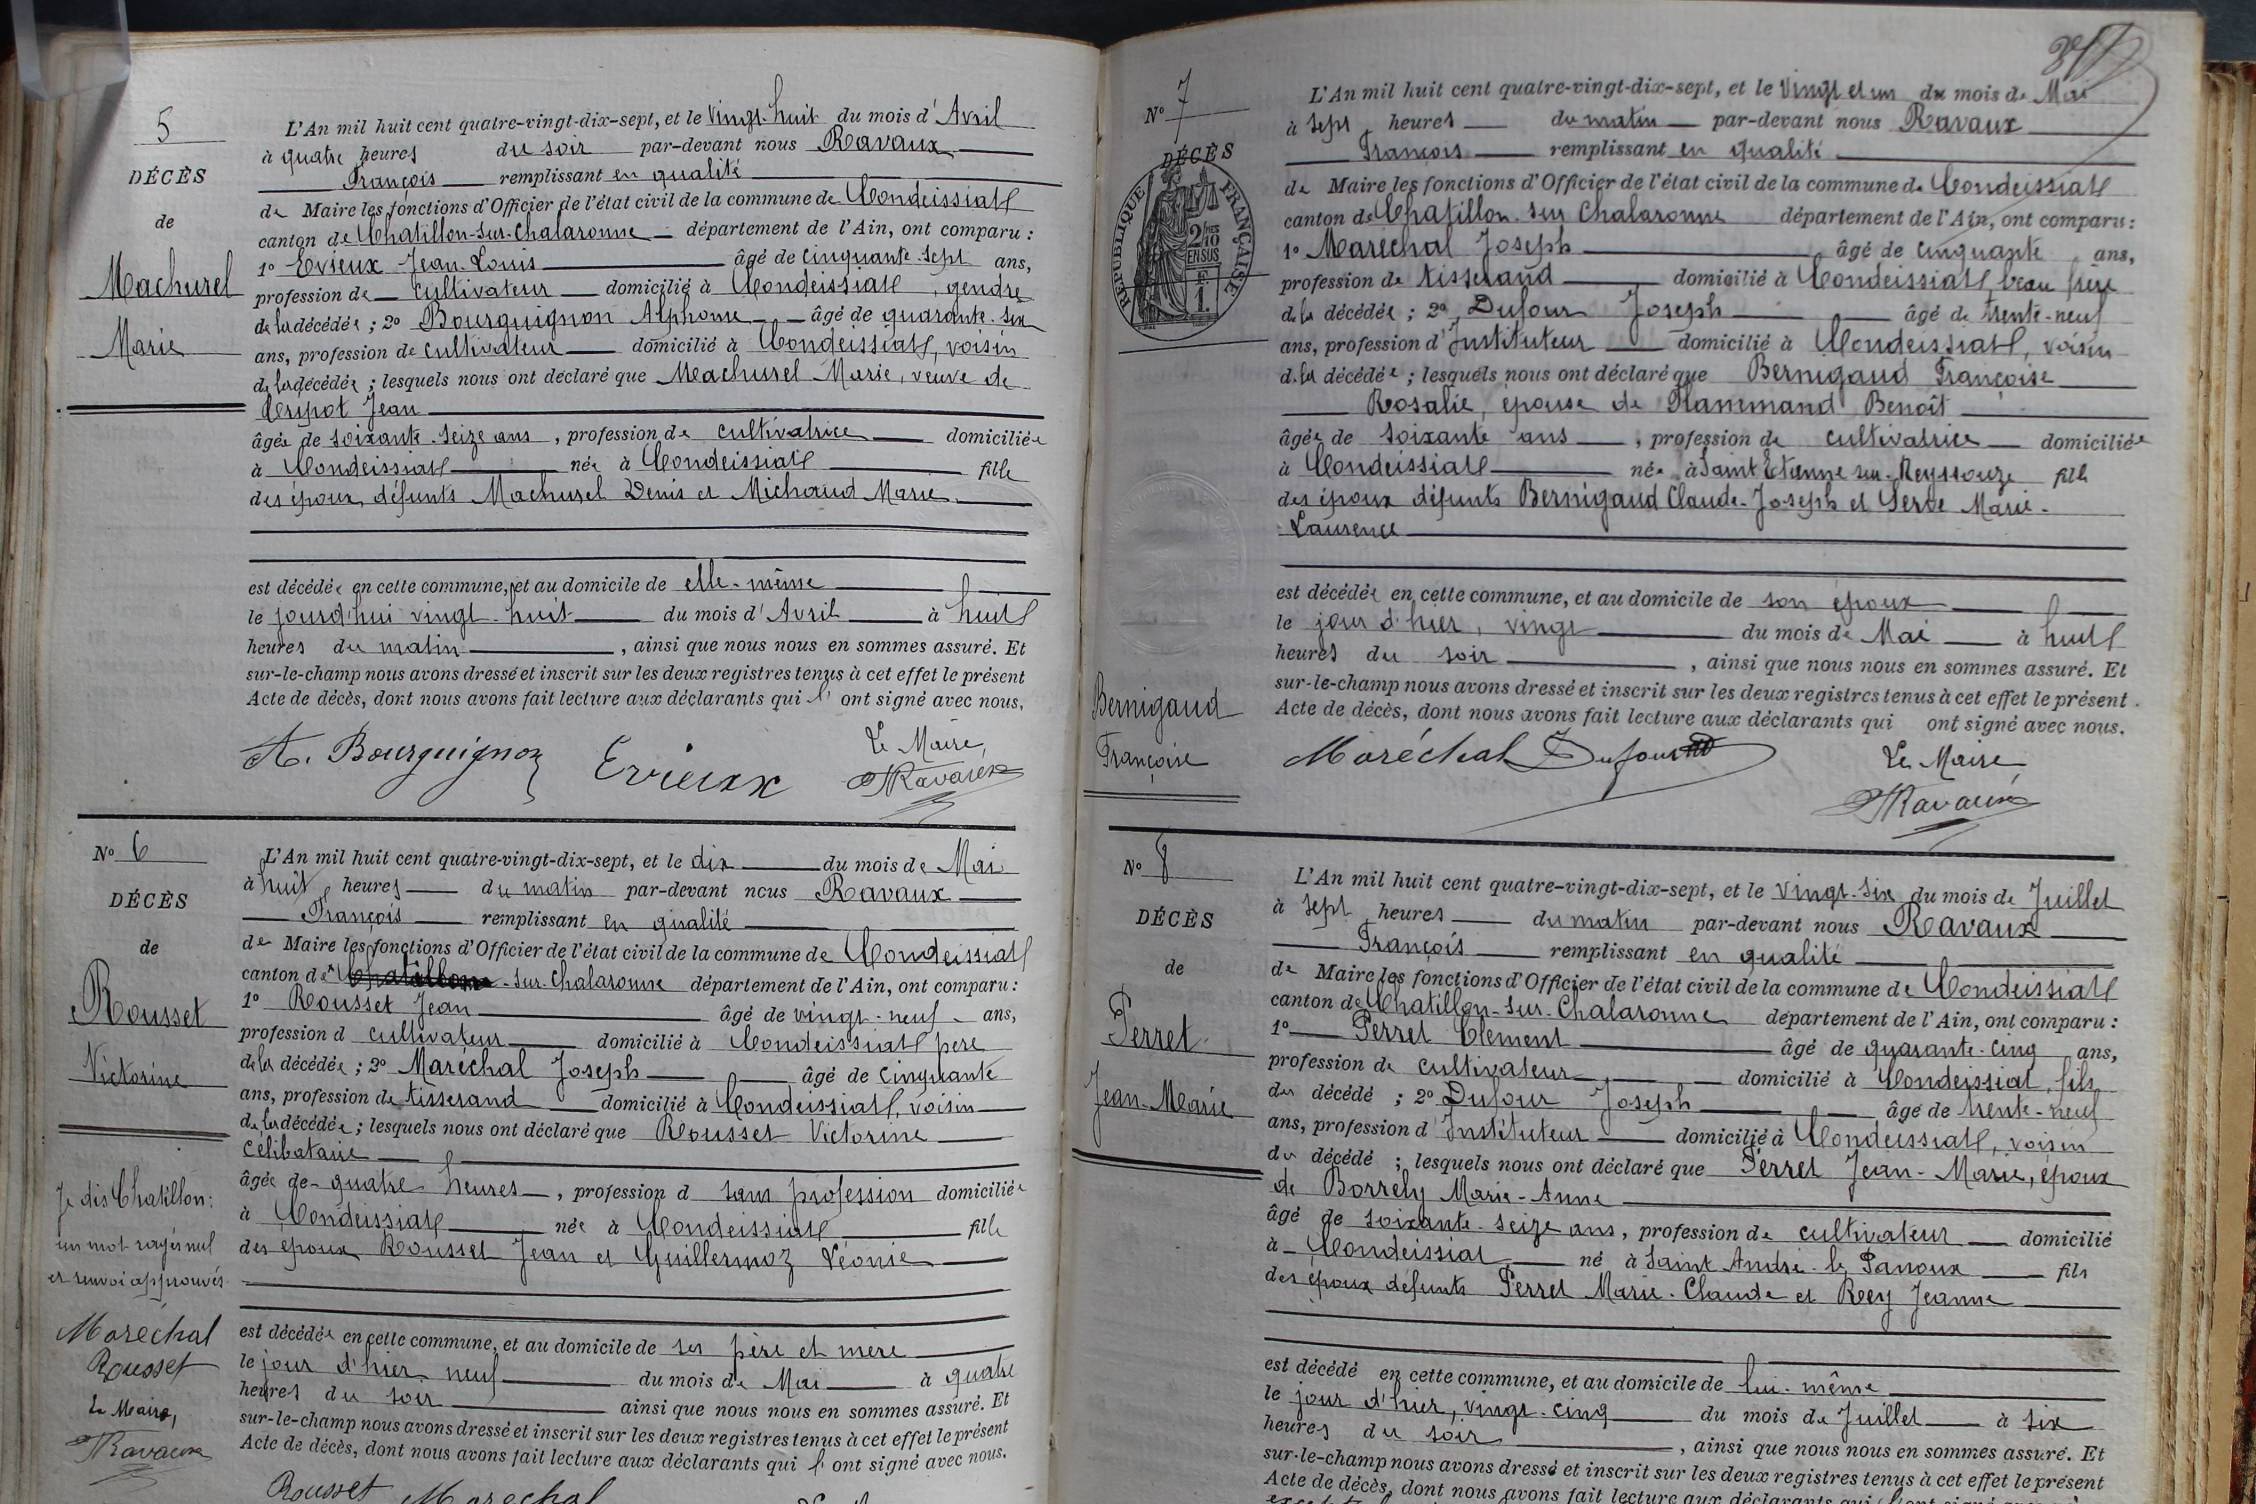 5
DÉCÈS
de
Machurel
Marie
L'An mil huit cent quatre-vingt-dix-sept, et le vingt-huit du mois d'Avril
à quatre heures du soir par-devant nous Ravaux
François remplissant en qualité
de Maire les fonctions d'Officier de l'état civil de la commune de Condeissiat
canton de Chatillon-sur-Chalaronne département de l'Ain, ont comparu :
1º Evieux Jean-Louis âgé de cinquante-sept ans,
profession de cultivateur domicilié à Condeissiat, gendre
de la décédée ; 2º Bourguignon Alphonse âgé de quarante-six
ans, profession de cultivateur domicilié à Condeissiat, voisin
de la décédée ; lesquels nous ont déclaré que Machurel Marie, veuve de
Jean
âgée de soixante-seize ans, profession de cultivatrice domiciliée
à Condeissiat née à Condeissiat fille
des époux défunts Machurel Denis et Michaud Marie
est décédée en cette commune, et au domicile de elle-même
le jourd'hui vingt-huit du mois d'Avril à huit
heures du matin, ainsi que nous nous en sommes assuré. Et
sur-le-champ nous avons dressé et inscrit sur les deux registres tenus à cet effet le présent
Acte de décès, dont nous avons fait lecture aux déclarants qui l' ont signé avec nous.
A. Bourguignon Evieux Le Maire,
Ravaux
Nº 6
DÉCÈS
de
Rousset
Victorine
Je dis Chatillon:
un mot rayé nul
et renvoi approuvés
Maréchal
Rousset
Le Maire,
Ravaux
L'An mil huit cent quatre-vingt-dix-sept, et le dix du mois de Mai
à huit heures du matin par-devant nous Ravaux
François remplissant en qualité
de Maire les fonctions d'Officier de l'état civil de la commune de Condeissiat
canton de Chatillon-sur-Chalaronne département de l'Ain, ont comparu :
1º Rousset Jean âgé de vingt-neuf ans,
profession d cultivateur domicilié à Condeissiat père
de la décédée ; 2º Maréchal Joseph âgé de cinquante
ans, profession de tisserand domicilié à Condeissiat, voisin
de la décédée ; lesquels nous ont déclaré que Rousset Victorine
célibataire
âgée de quatre heures, profession d sans profession domiciliée
à Condeissiat née à Condeissiat fille
des époux Rousset Jean et Guillermoz Léonie
est décédée en cette commune, et au domicile de ses père et mère
le jour d'hier neuf du mois de Mai à quatre
heures du soir ainsi que nous nous en sommes assuré. Et
sur-le-champ nous avons dressé et inscrit sur les deux registres tenus à cet effet le présent
Acte de décès, dont nous avons fait lecture aux déclarants qui l' ont signé avec nous.
Rousset Maréchal
Nº 7
DÉCÈS
RÉPUBLIQUE FRANÇAISE
2/10
EN SUS
F.
1.
Bernigaud
Françoise
L'An mil huit cent quatre-vingt-dix-sept, et le vingt et un du mois de Mai
à sept heures du matin par-devant nous Ravaux
François remplissant en qualité
de Maire les fonctions d'Officier de l'état civil de la commune de Condeissiat
canton de Chatillon-sur-Chalaronne département de l'Ain, ont comparu :
1º Maréchal Joseph âgé de cinquante ans,
profession de tisserand domicilié à Condeissiat, beau frère
de la décédée ; 2º Dufour Joseph âgé de trente-neuf
ans, profession d'Instituteur domicilié à Condeissiat, voisin
de la décédée ; lesquels nous ont déclaré que Bernigaud Françoise
Rosalie, épouse de Benoît
âgée de soixante ans, profession de cultivatrice domiciliée
à Condeissiat née à Saint Etienne sur-Reyssouze fille
des époux défunts Bernigaud Claude-Joseph et Serve Marie-
Laurence
est décédée en cette commune, et au domicile de son époux
le jour d'hier, vingt du mois de Mai à huit
heures du soir, ainsi que nous nous en sommes assuré. Et
sur-le-champ nous avons dressé et inscrit sur les deux registres tenus à cet effet le présent
Acte de décès, dont nous avons fait lecture aux déclarants qui ont signé avec nous.
Maréchal Dufour Le Maire
Ravaux
Nº 8
DÉCÈS
de
Perret
Jean-Marie
L'An mil huit cent quatre-vingt-dix-sept, et le vingt-six du mois de Juillet
à sept heures du matin par-devant nous Ravaux
François remplissant en qualité
de Maire les fonctions d'Officier de l'état civil de la commune de Condeissiat
canton de Chatillon-sur-Chalaronne département de l'Ain, ont comparu :
1º Perret Clément âgé de quarante-cinq ans,
profession de cultivateur domicilié à Condeissiat, fils
du décédé ; 2º Dufour Joseph âgé de trente-neuf
ans, profession d'Instituteur domicilié à Condeissiat, voisin
du décédé ; lesquels nous ont déclaré que Perret Jean-Marie, époux
de Borrely Marie-Anne
âgé de soixante-seize ans, profession de cultivateur domicilié
à Condeissiat né à Saint André-le Panoux fils
des époux défunts Perret Marie-Claude et Rey Jeanne
est décédé en cette commune, et au domicile de lui-même
le jour d'hier, vingt-cinq du mois de Juillet à six
heures du soir, ainsi que nous nous en sommes assuré. Et
sur-le-champ nous avons dressé et inscrit sur les deux registres tenus à cet effet le présent
Acte de décès, dont nous avons fait lecture aux déclarants qui l'ont signé avec nous